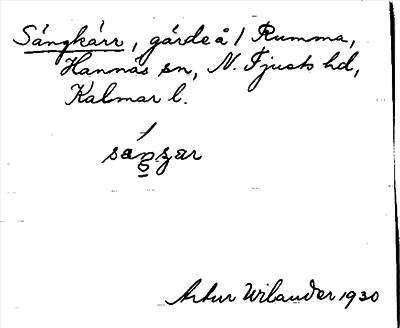 Sångkärr, gärde å / Rumma,
Hannäs sn, N. Tjusts hd,
Kalmar l.
Artur Wilander 1930